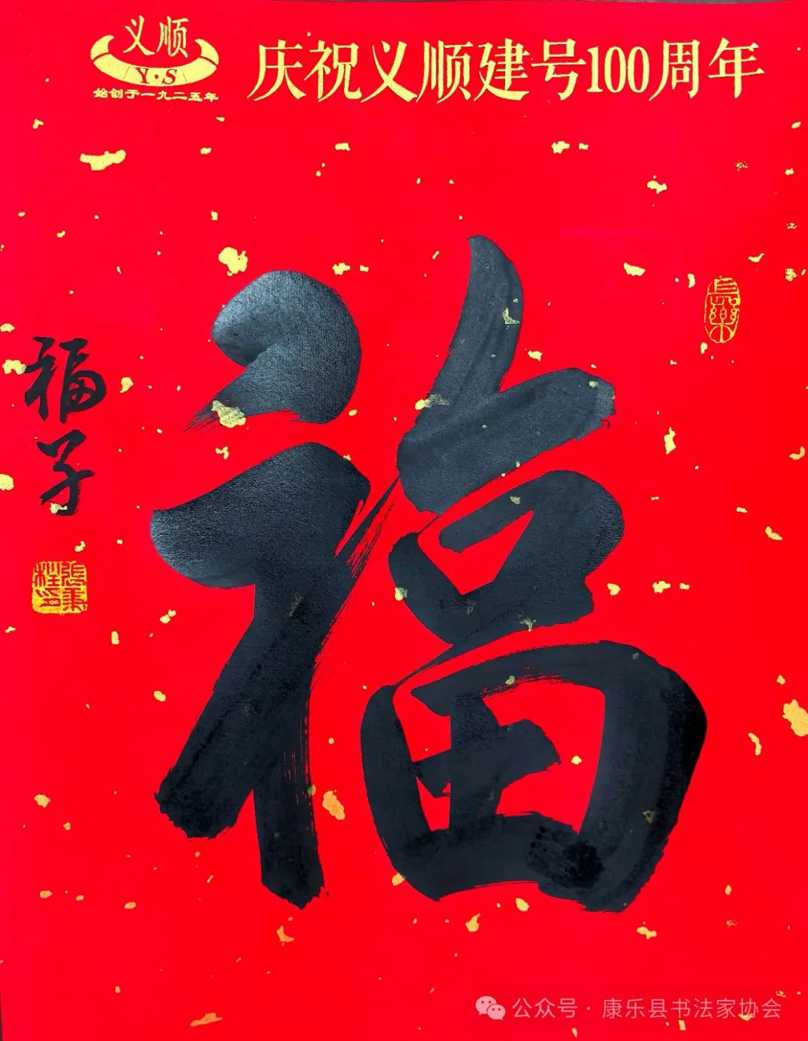 义顺
Y·S
始创于一九二五年
庆祝义顺建号100周年
福
長樂
福子
张秉
柱印
公众号·康乐县书法家协会